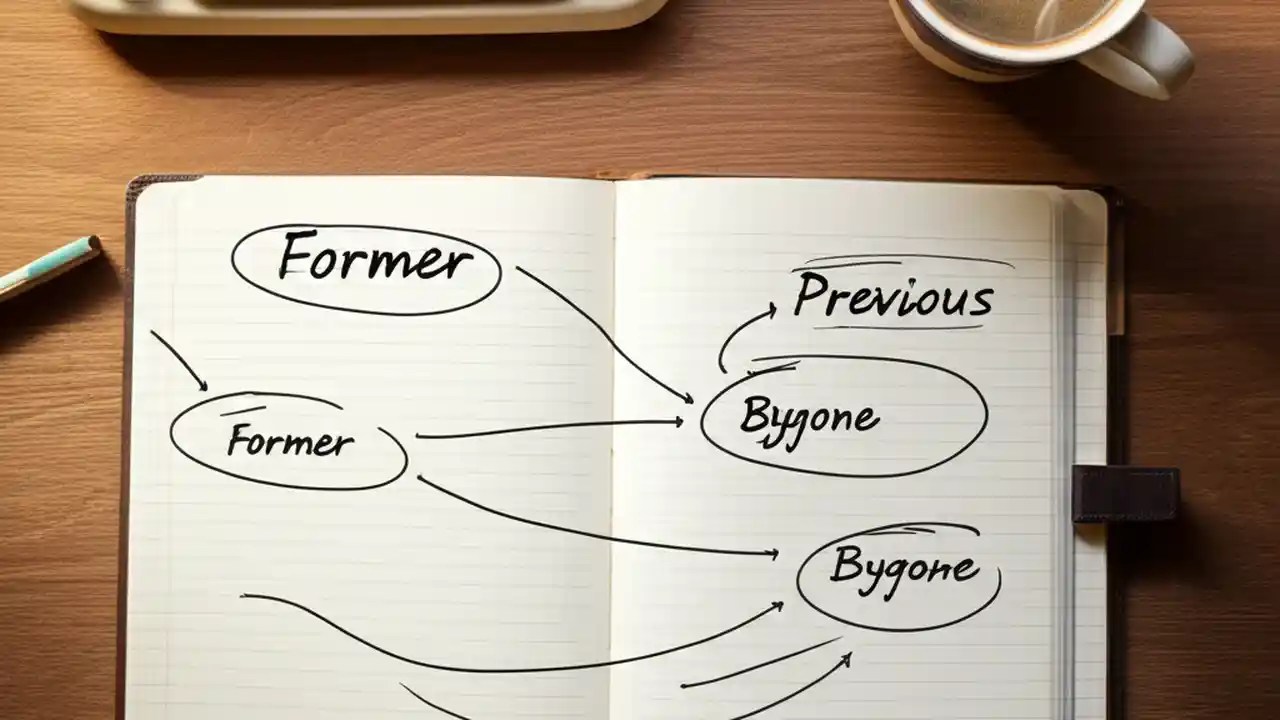 Former
Previous
Former
Bygone
Bygone